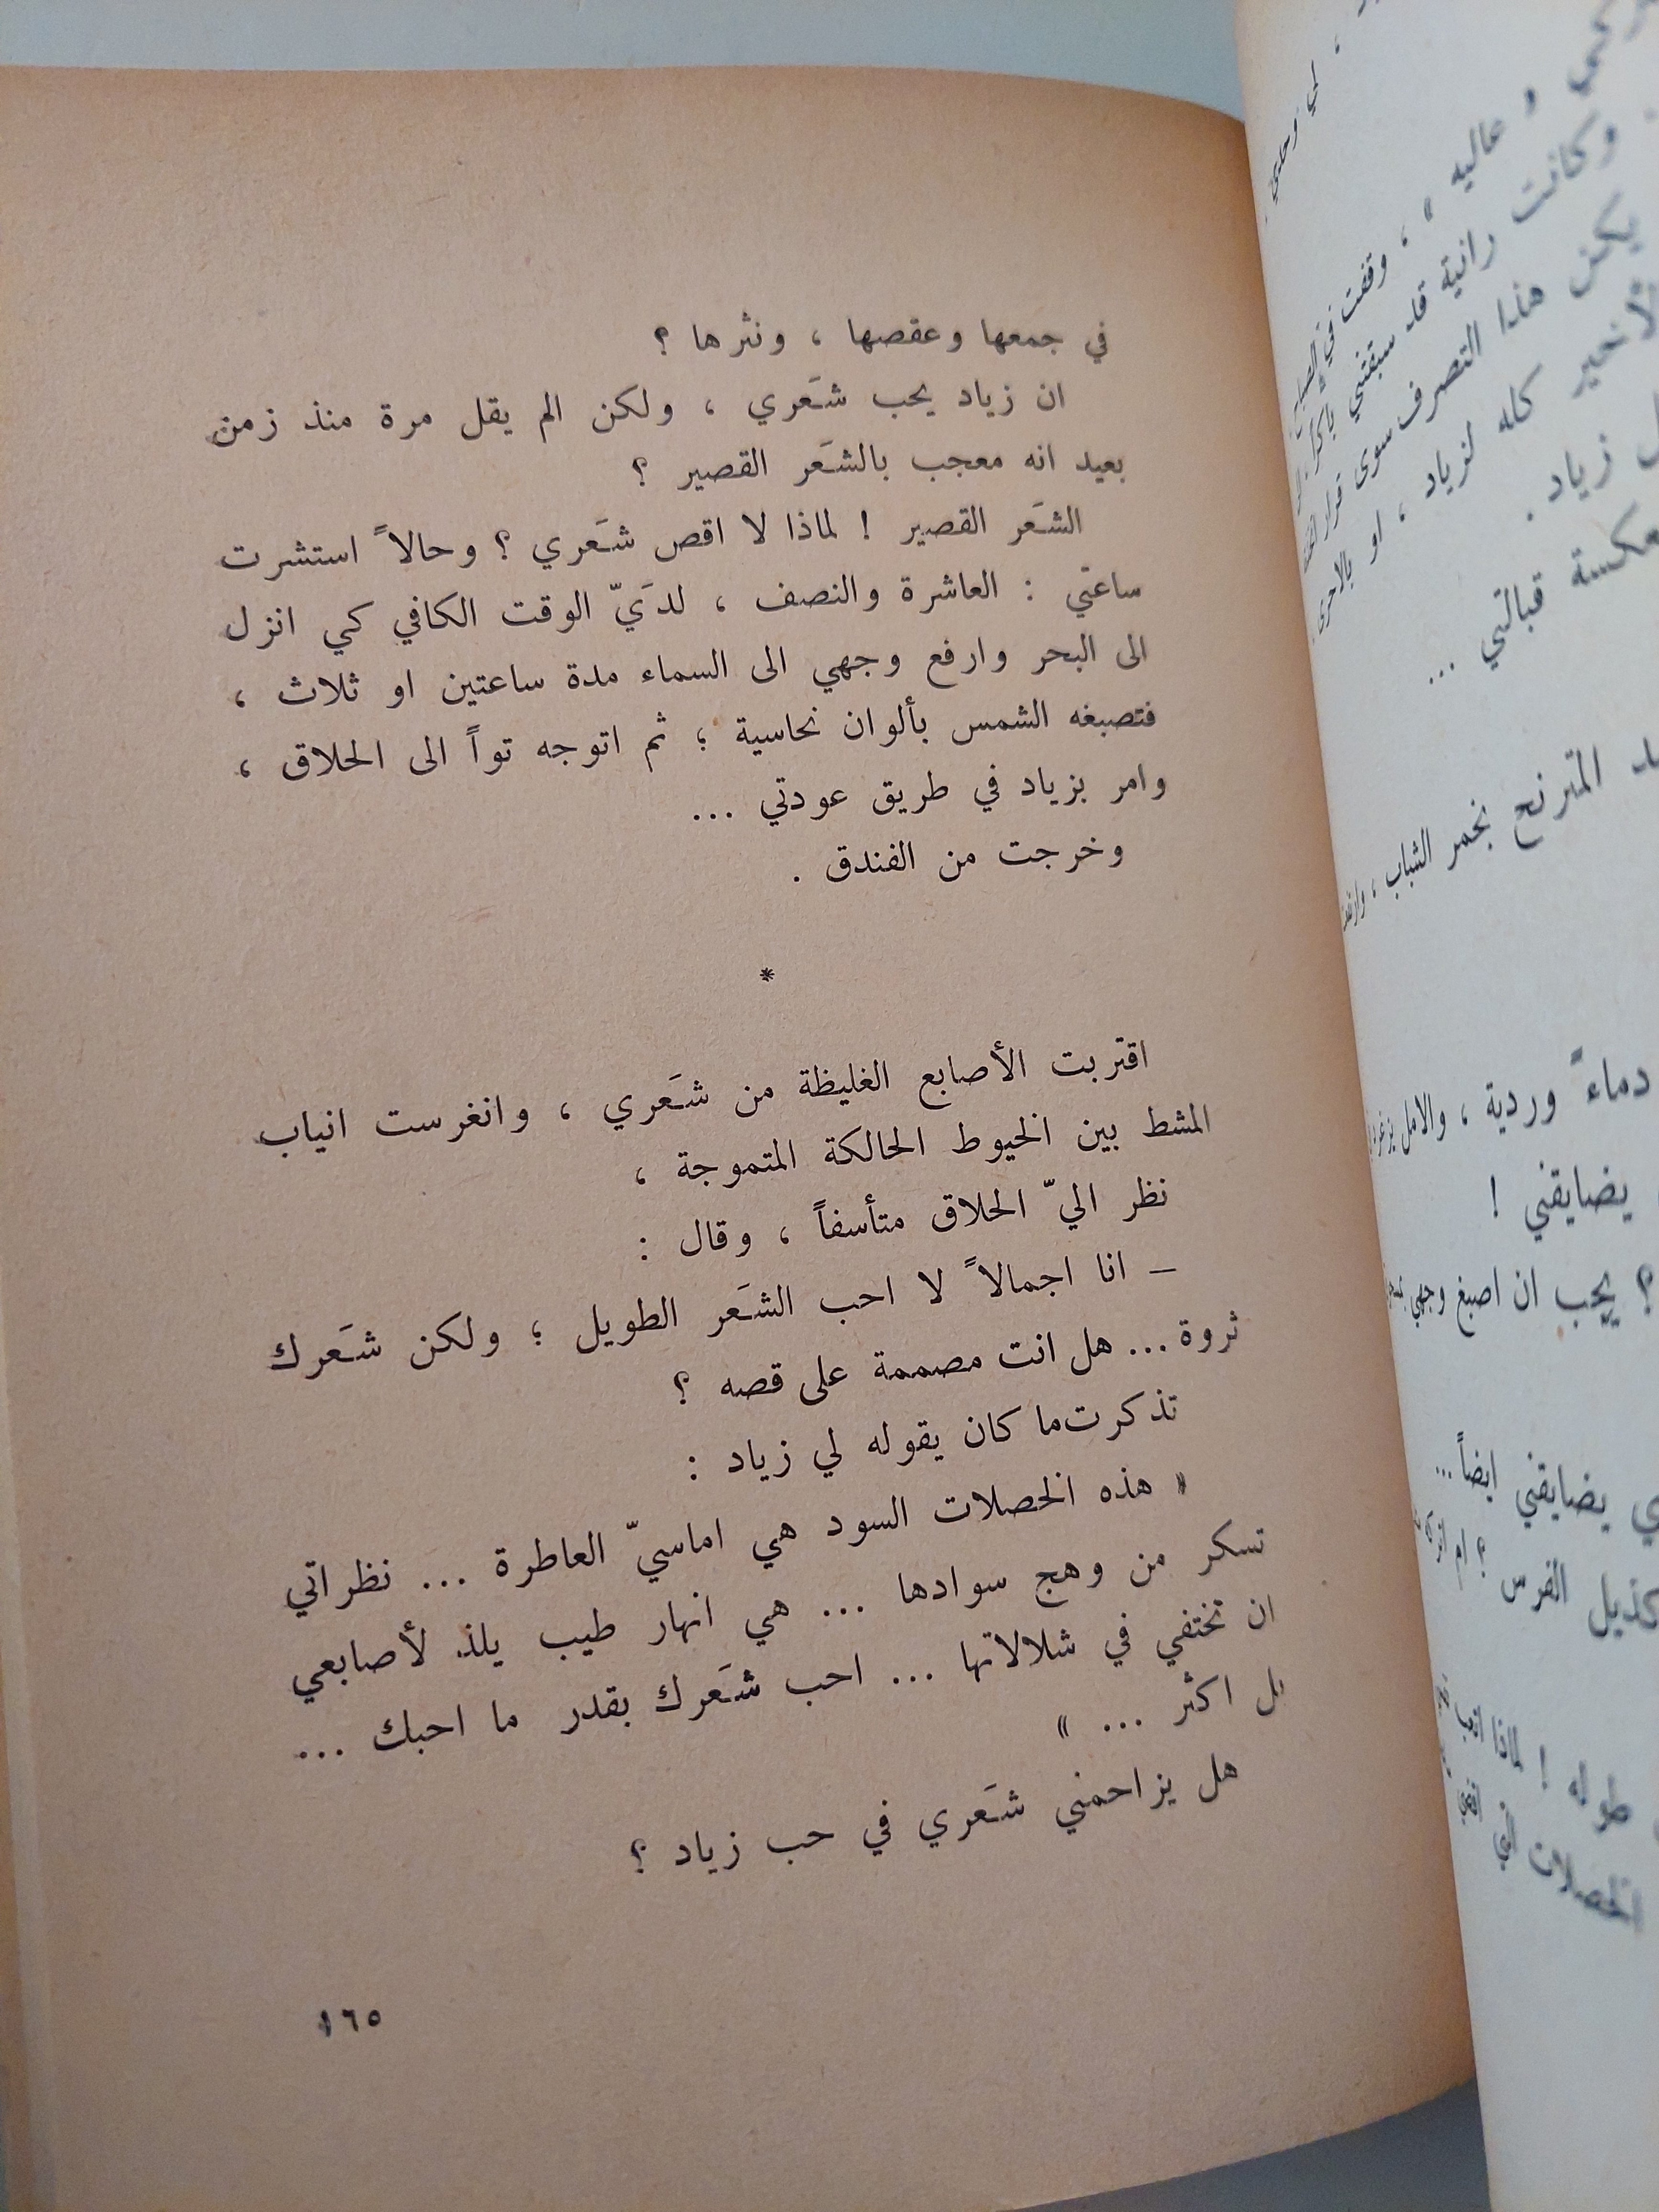 في جمعها وعقصها ، ونثرها ؟
ان زياد يحب شَعري ، ولكن الم يقل مرة منذ زمن
بعيد انه معجب بالشَعر القصير ؟
الشَعر القصير ! لماذا لا اقص شَعري ؟ وحالاً استشرت
ساعتي : العاشرة والنصف ، لدَيّ الوقت الكافي كي انزل
الى البحر وارفع وجهي الى السماء مدة ساعتين او ثلاث ،
فتصبغه الشمس بألوان نحاسية ؛ ثم اتوجه تواً الى الحلاق ،
وامر بزياد في طريق عودتي ...
وخرجت من الفندق .
*
اقتربت الأصابع الغليظة من شَعري ، وانغرست انياب
المشط بين الخيوط الحالكة المتموجة ،
نظر اليّ الحلاق متأسفاً ، وقال :
– انا اجمالاً لا احب الشَعر الطويل ؛ ولكن شَعرك
ثروة ... هل انت مصممة على قصه ؟
تذكرت ما كان يقوله لي زياد :
« هذه الخصلات السود هي اماسيّ العاطرة ... نظراتي
تسكر من وهج سوادها ... هي انهار طيب يلذ لأصابعي
ان تختفي في شلالاتها ... احب شَعرك بقدر ما احبك ...
بل اكثر ... »
هل يزاحمني شَعري في حب زياد ؟
١٦٥
و عاليه » ، وقفت في
وكانت رانية قد سبقتني
يكن هذا التصرف سوى قرار
كله لزياد ، او بالاحرى
زياد .
قبالتي ...
المترنح بخمر الشباب ،
دماءً وردية ، والامل
يضايقني !
؟ يجب ان اصبغ وجهي
يضايقني ايضاً ...
كذيل الفرس ؟ ام
طوله ! لماذا
الخصلات التي